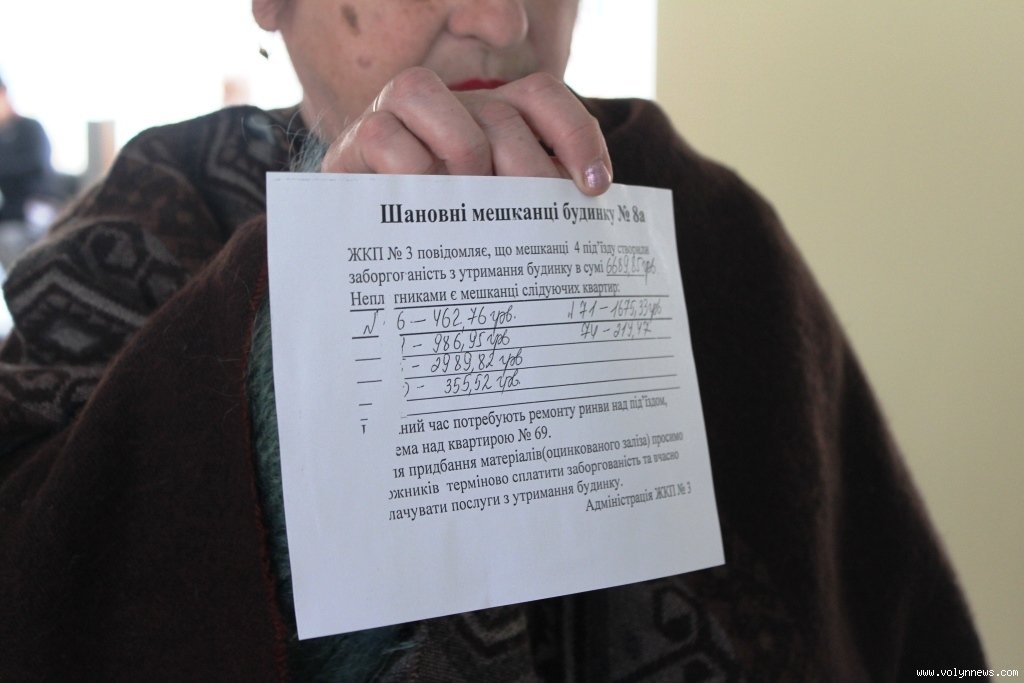 Шановні мешканці будинку № 8а
ЖКП № 3 повідомляє, що мешканці 4 під'їзду створили
заборгованість з утримання будинку в сумі 6689,85 грв.
Непл тниками є мешканці слідуючих квартир:
№ 6 – 462,76 грв. №71 – 1675,33 грв
– 986,95 грв 74 – 219,47
– 2989,82 грв
– 355,52 грв
ний час потребують ремонту ринви над під'їздом,
ема над квартирою № 69.
ля придбання матеріалів(оцинкованого заліза) просимо
ожників терміново сплатити заборгованість та вчасно
лачувати послуги з утримання будинку.
Адміністрація ЖКП № 3
www.volynnews.com